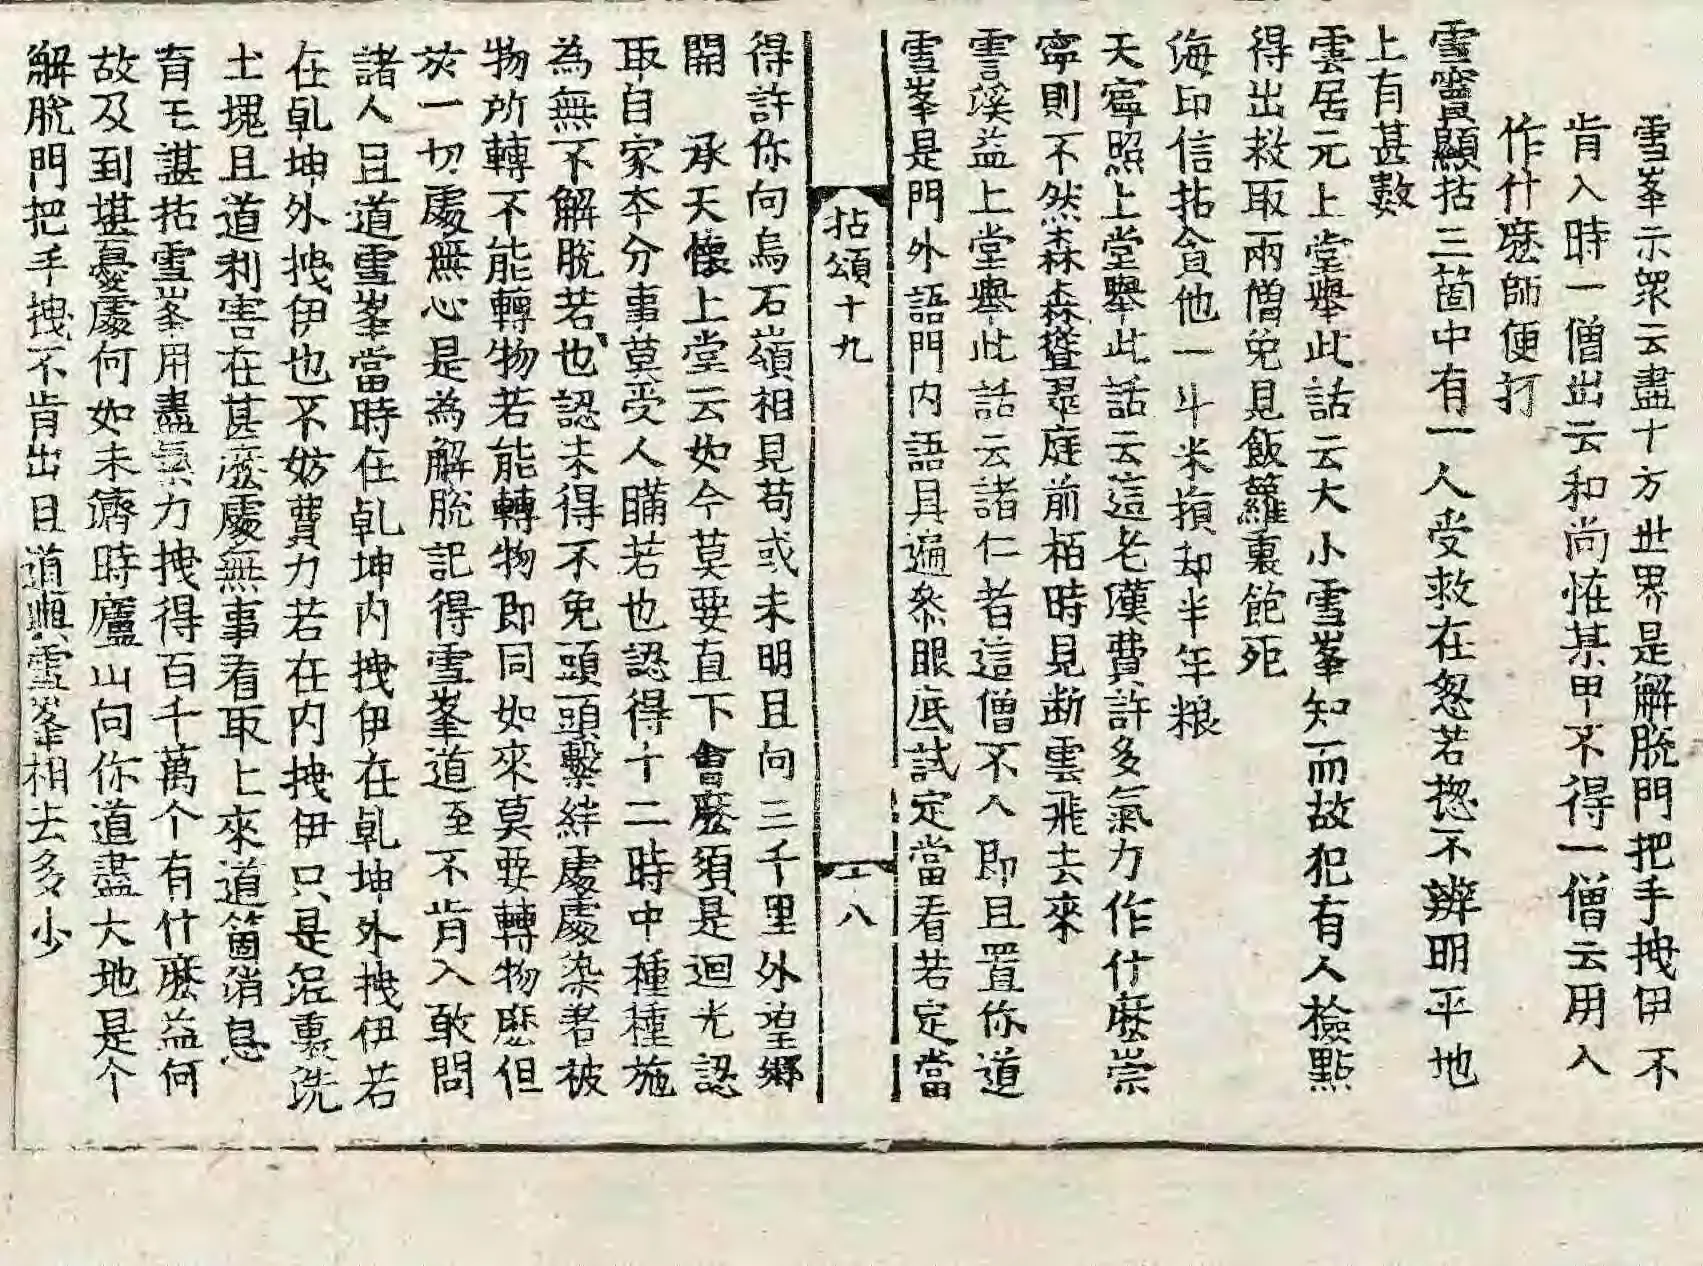 雪峯示衆云盡十方世界是解脫門把手拽伊不
肯入時一僧出云和尚怪某甲不得一僧云用入
作什麽師便打
雪竇顯拈三箇中有一人受救在忽若㧾不辨明平地
上有甚數
雲居元上堂舉此話云大小雪峯知而故犯有人檢點
得出救取兩僧免見飯籮裏飽死
海印信拈貪他一斗米損却半年粮
天寧照上堂舉此話云這老漢費許多氣力作什麽崇
寧則不然森森聳翠庭前栢時見斷雲飛去來
雲溪益上堂舉此話云諸仁者這僧不入即且置你道
雪峯是門外語門内語具遍叅眼底試定當看若定當
拈頌十九 八
得許你向烏石嶺相見苟或未明且向三千里外望鄉
開 承天懷上堂云如今莫要直下會麽須是迴光認
取自家夲分事莫受人瞞若也認得十二時中種種施
為無不解脫若也認未得不免頭頭繫絆處處染着被
物所轉不能轉物若能轉物即同如來莫要轉物麽但
於一切處無心是為解脫記得雪峯道至不肯入敢問
諸人且道雪峯當時在乹坤内拽伊在乹坤外拽伊若
在乹坤外拽伊也不妨費力若在内拽伊只是泥裏洗
土塊且道利害在甚麽處無事看取上來道箇消息
育王諶拈雪峯用盡氣力拽得百千萬个有什麽益何
故及到堪憂處何如未濟時廬山向你道盡大地是个
解脫門把手拽不肯出且道與雪峯相去多少